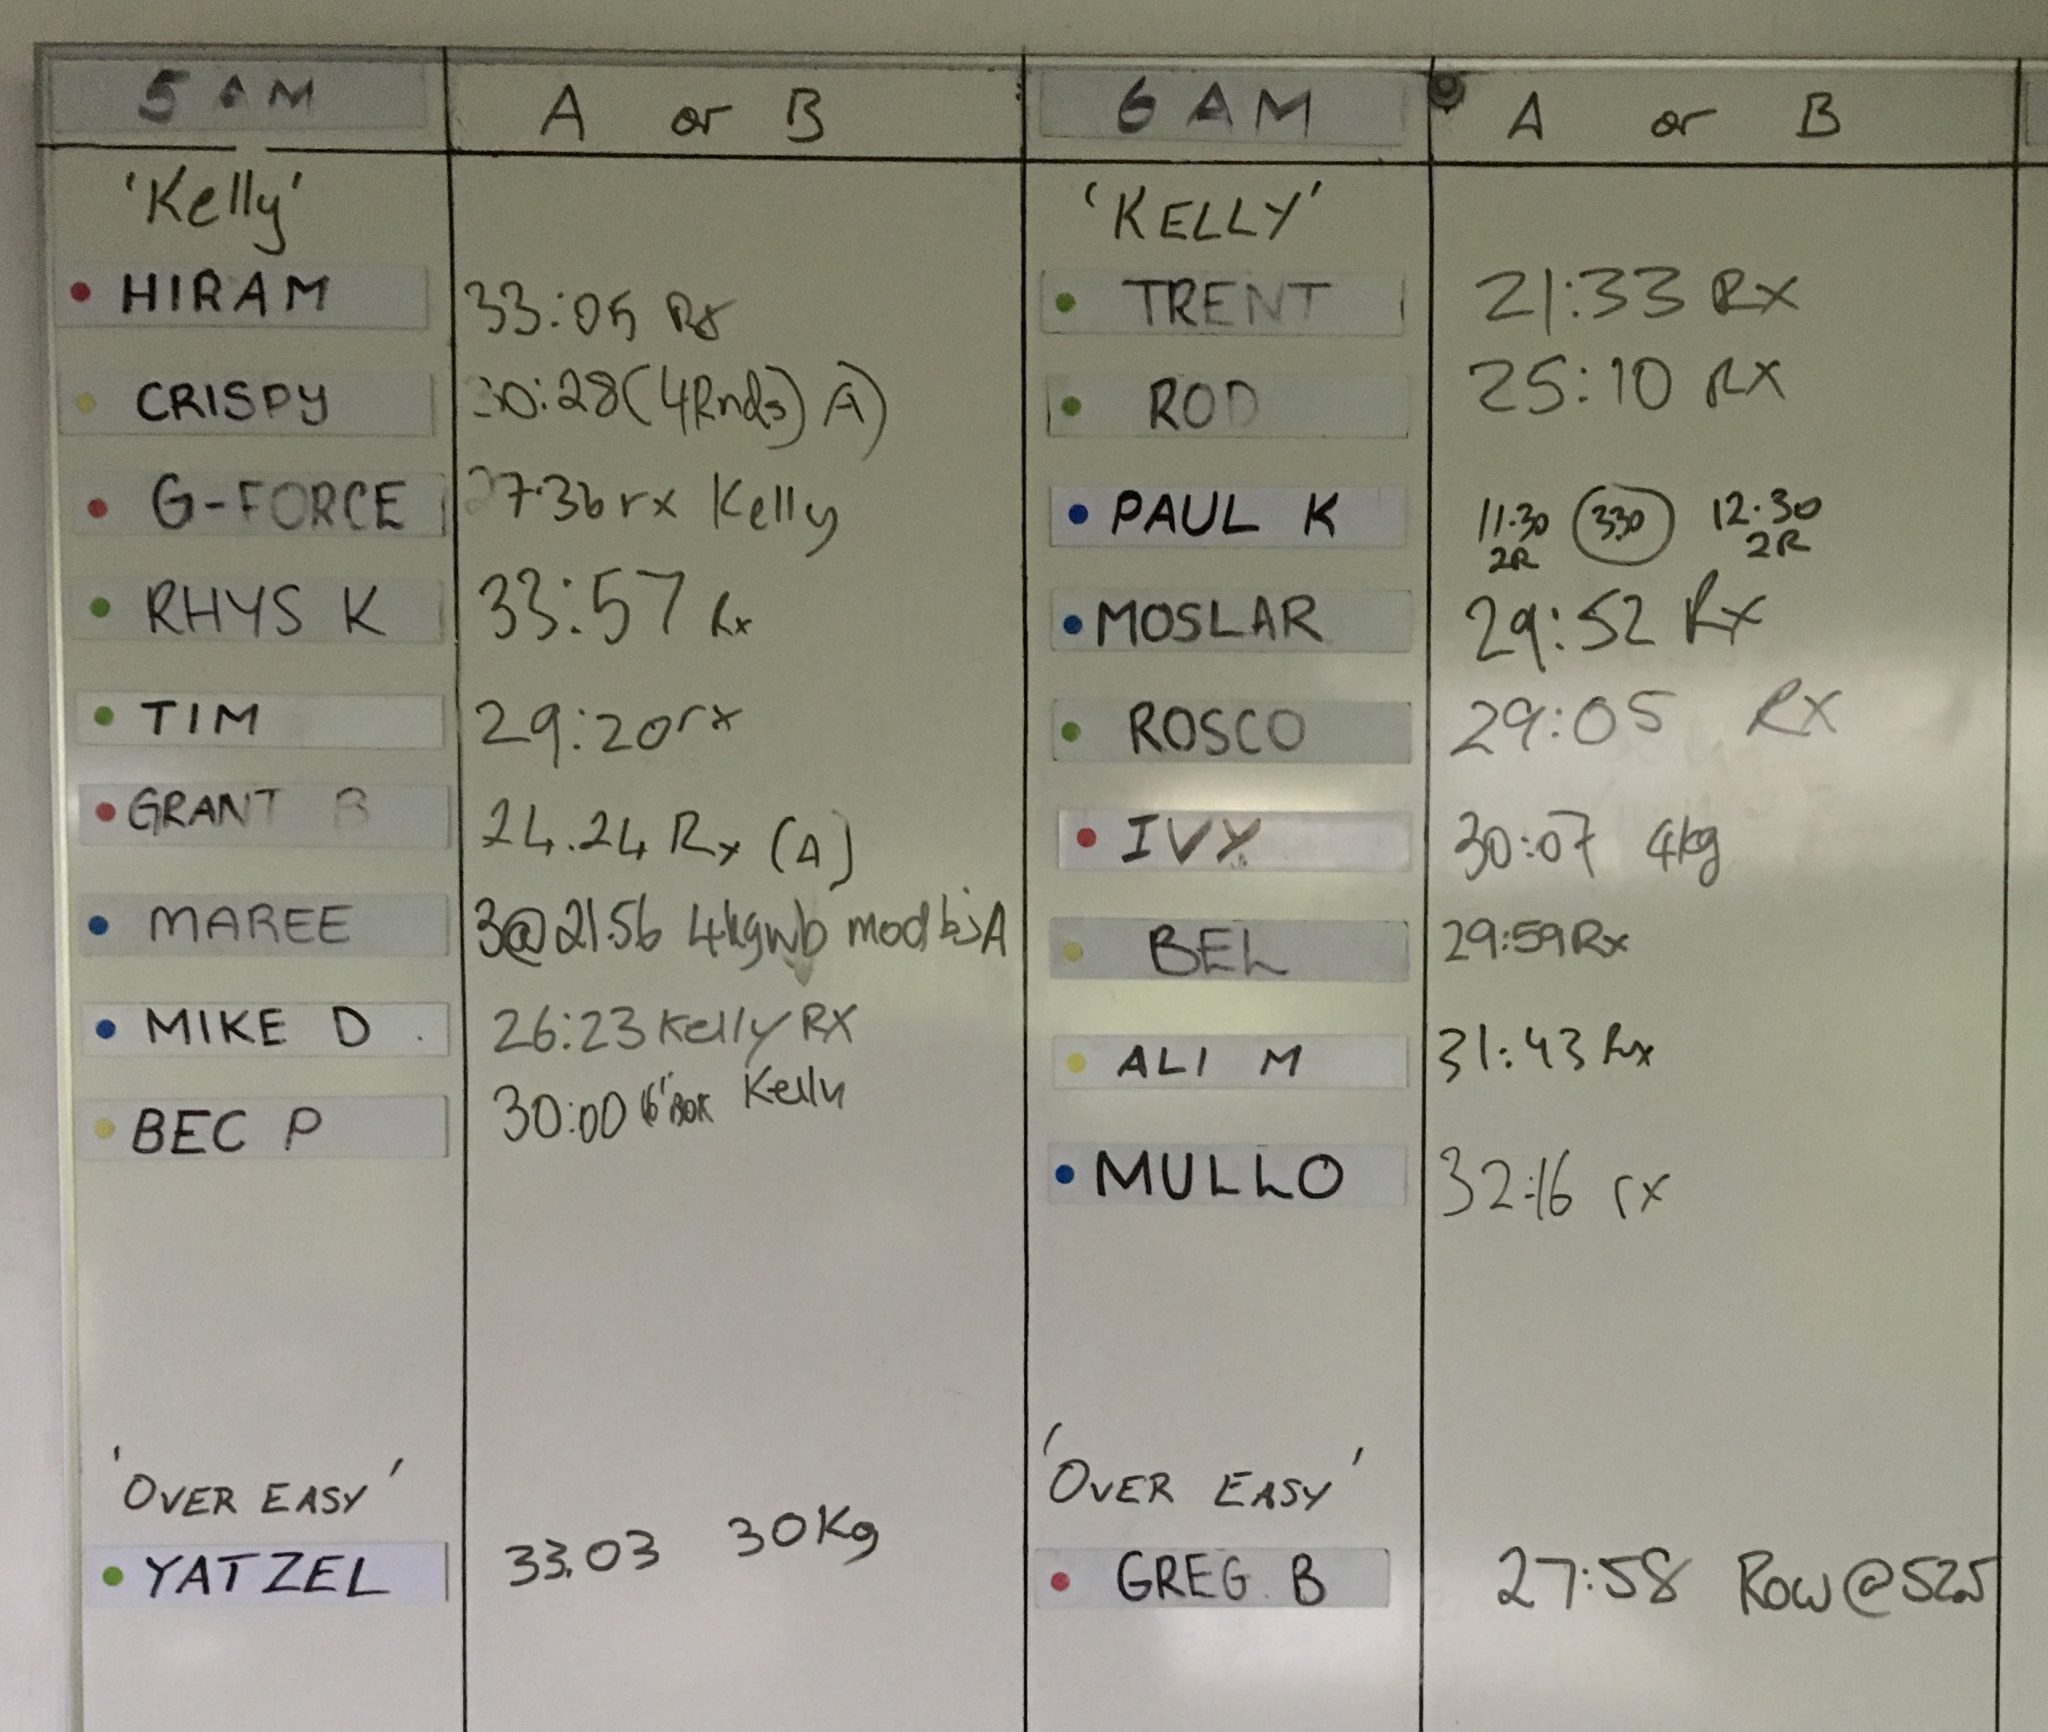 5 AM
A or B
'Kelly'
HIRAM 33:05 Rx
CRISPY 30:28 (4Rnds) A)
G-FORCE 27.36 rx Kelly
RHYS K 33:57 Rx
TIM 29:20 rx
GRANT B 24.24 Rx (A)
MAREE 3@21.56 4kg wb mod bj A
MIKE D 26:23 Kelly RX
BEC P 30:00 16" BOX Kelly
'OVER EASY'
YATZEL 33.03 30Kg
6 AM
A or B
'KELLY'
TRENT 21:33 RX
ROD 25:10 RX
PAUL K 11.30 3.30 12.30
2R 2R
MOSLAR 29:52 Rx
ROSCO 29:05 RX
IVY 30:07 4kg
BEL 29:59 Rx
ALI M 31:43 Rx
MULLO 32:16 rx
'OVER EASY'
GREG B 27:58 Row @ 525